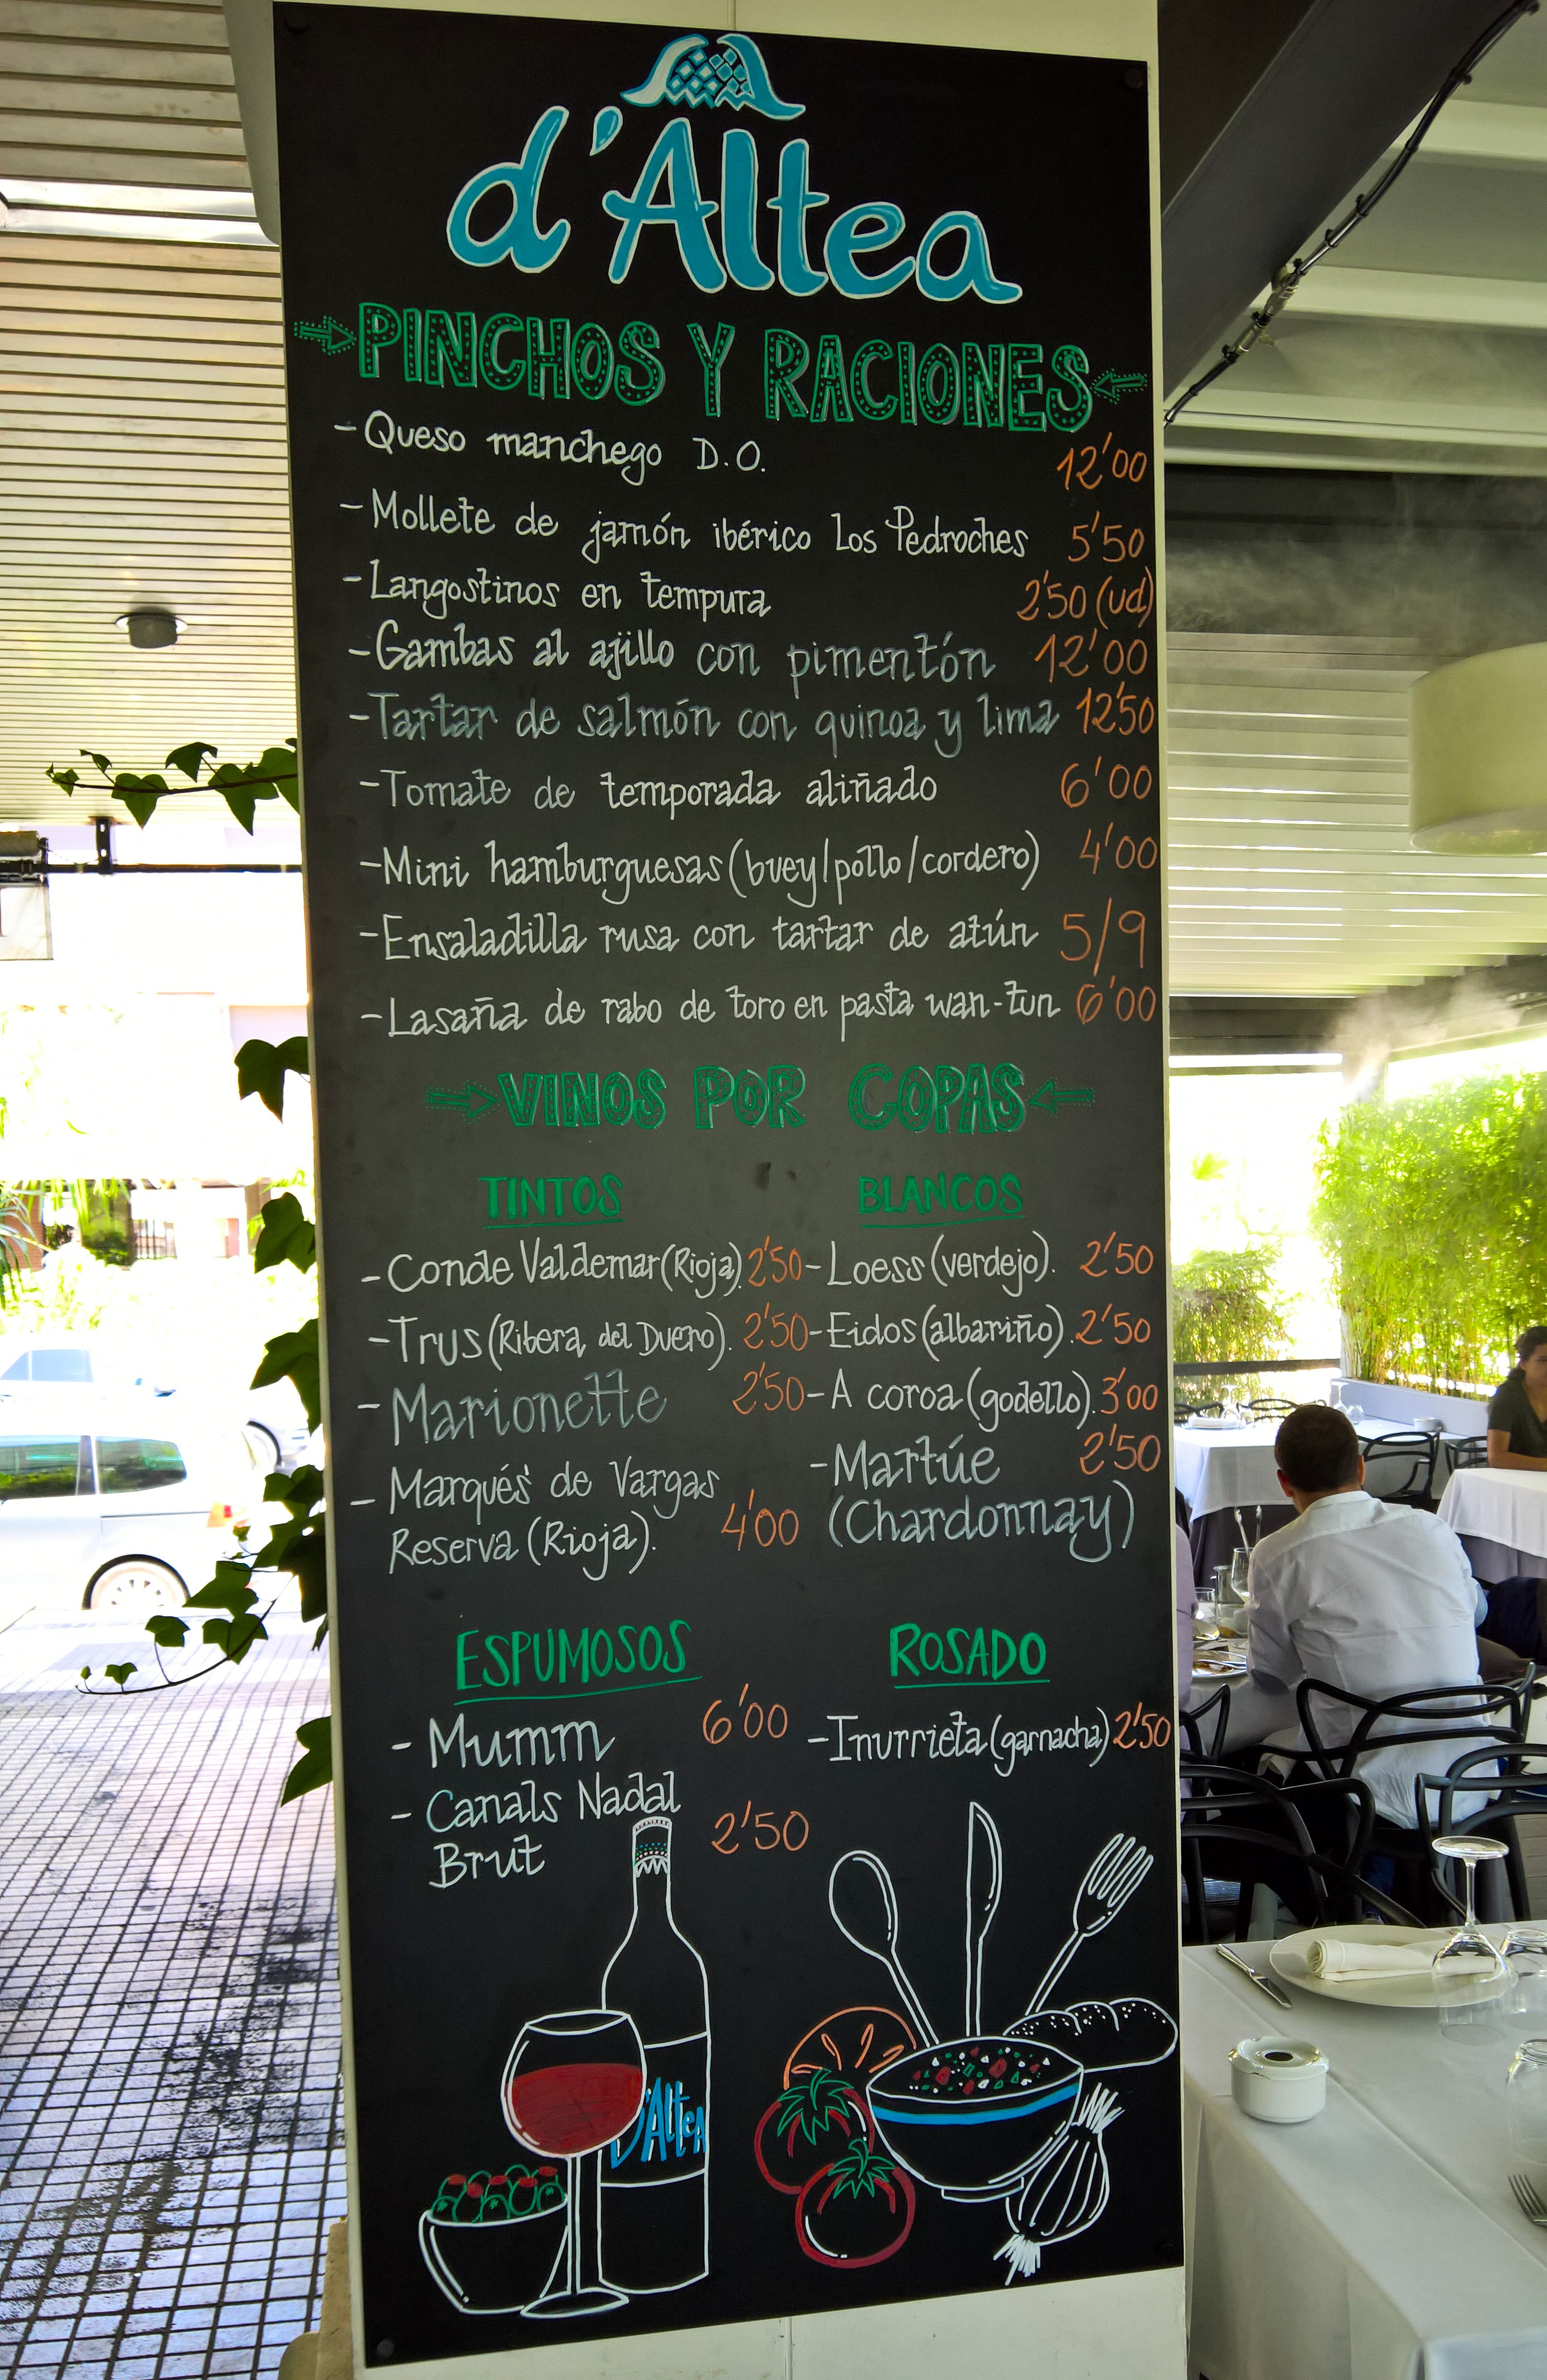 d'Altea
PINCHOS Y RACIONES
- Queso manchego D.O. 12'00
- Mollete de jamón ibérico Los Pedroches 5'50
- Langostinos en tempura 2'50 (ud)
- Gambas al ajillo con pimentón 12'00
- Tartar de salmón con quinoa y lima 12'50
- Tomate de temporada aliñado 6'00
- Mini hamburguesas (buey/pollo/cordero) 4'00
- Ensaladilla rusa con tartar de atún 5/9
- Lasaña de rabo de toro en pasta wan-tun 6'00
VINOS POR COPAS
TINTOS
- Conde Valdemar (Rioja). 2'50
- Trus (Ribera del Duero). 2'50
- Marionette 2'50
- Marqués de Vargas
Reserva (Rioja). 4'00
BLANCOS
- Loess (verdejo). 2'50
- Eidos (albariño). 2'50
- A coroa (godello). 3'00
- Martúe 2'50
(Chardonnay)
ESPUMOSOS
- Mumm 6'00
- Canals Nadal
Brut 2'50
ROSADO
- Inurrieta (garnacha) 2'50
D'AlteA